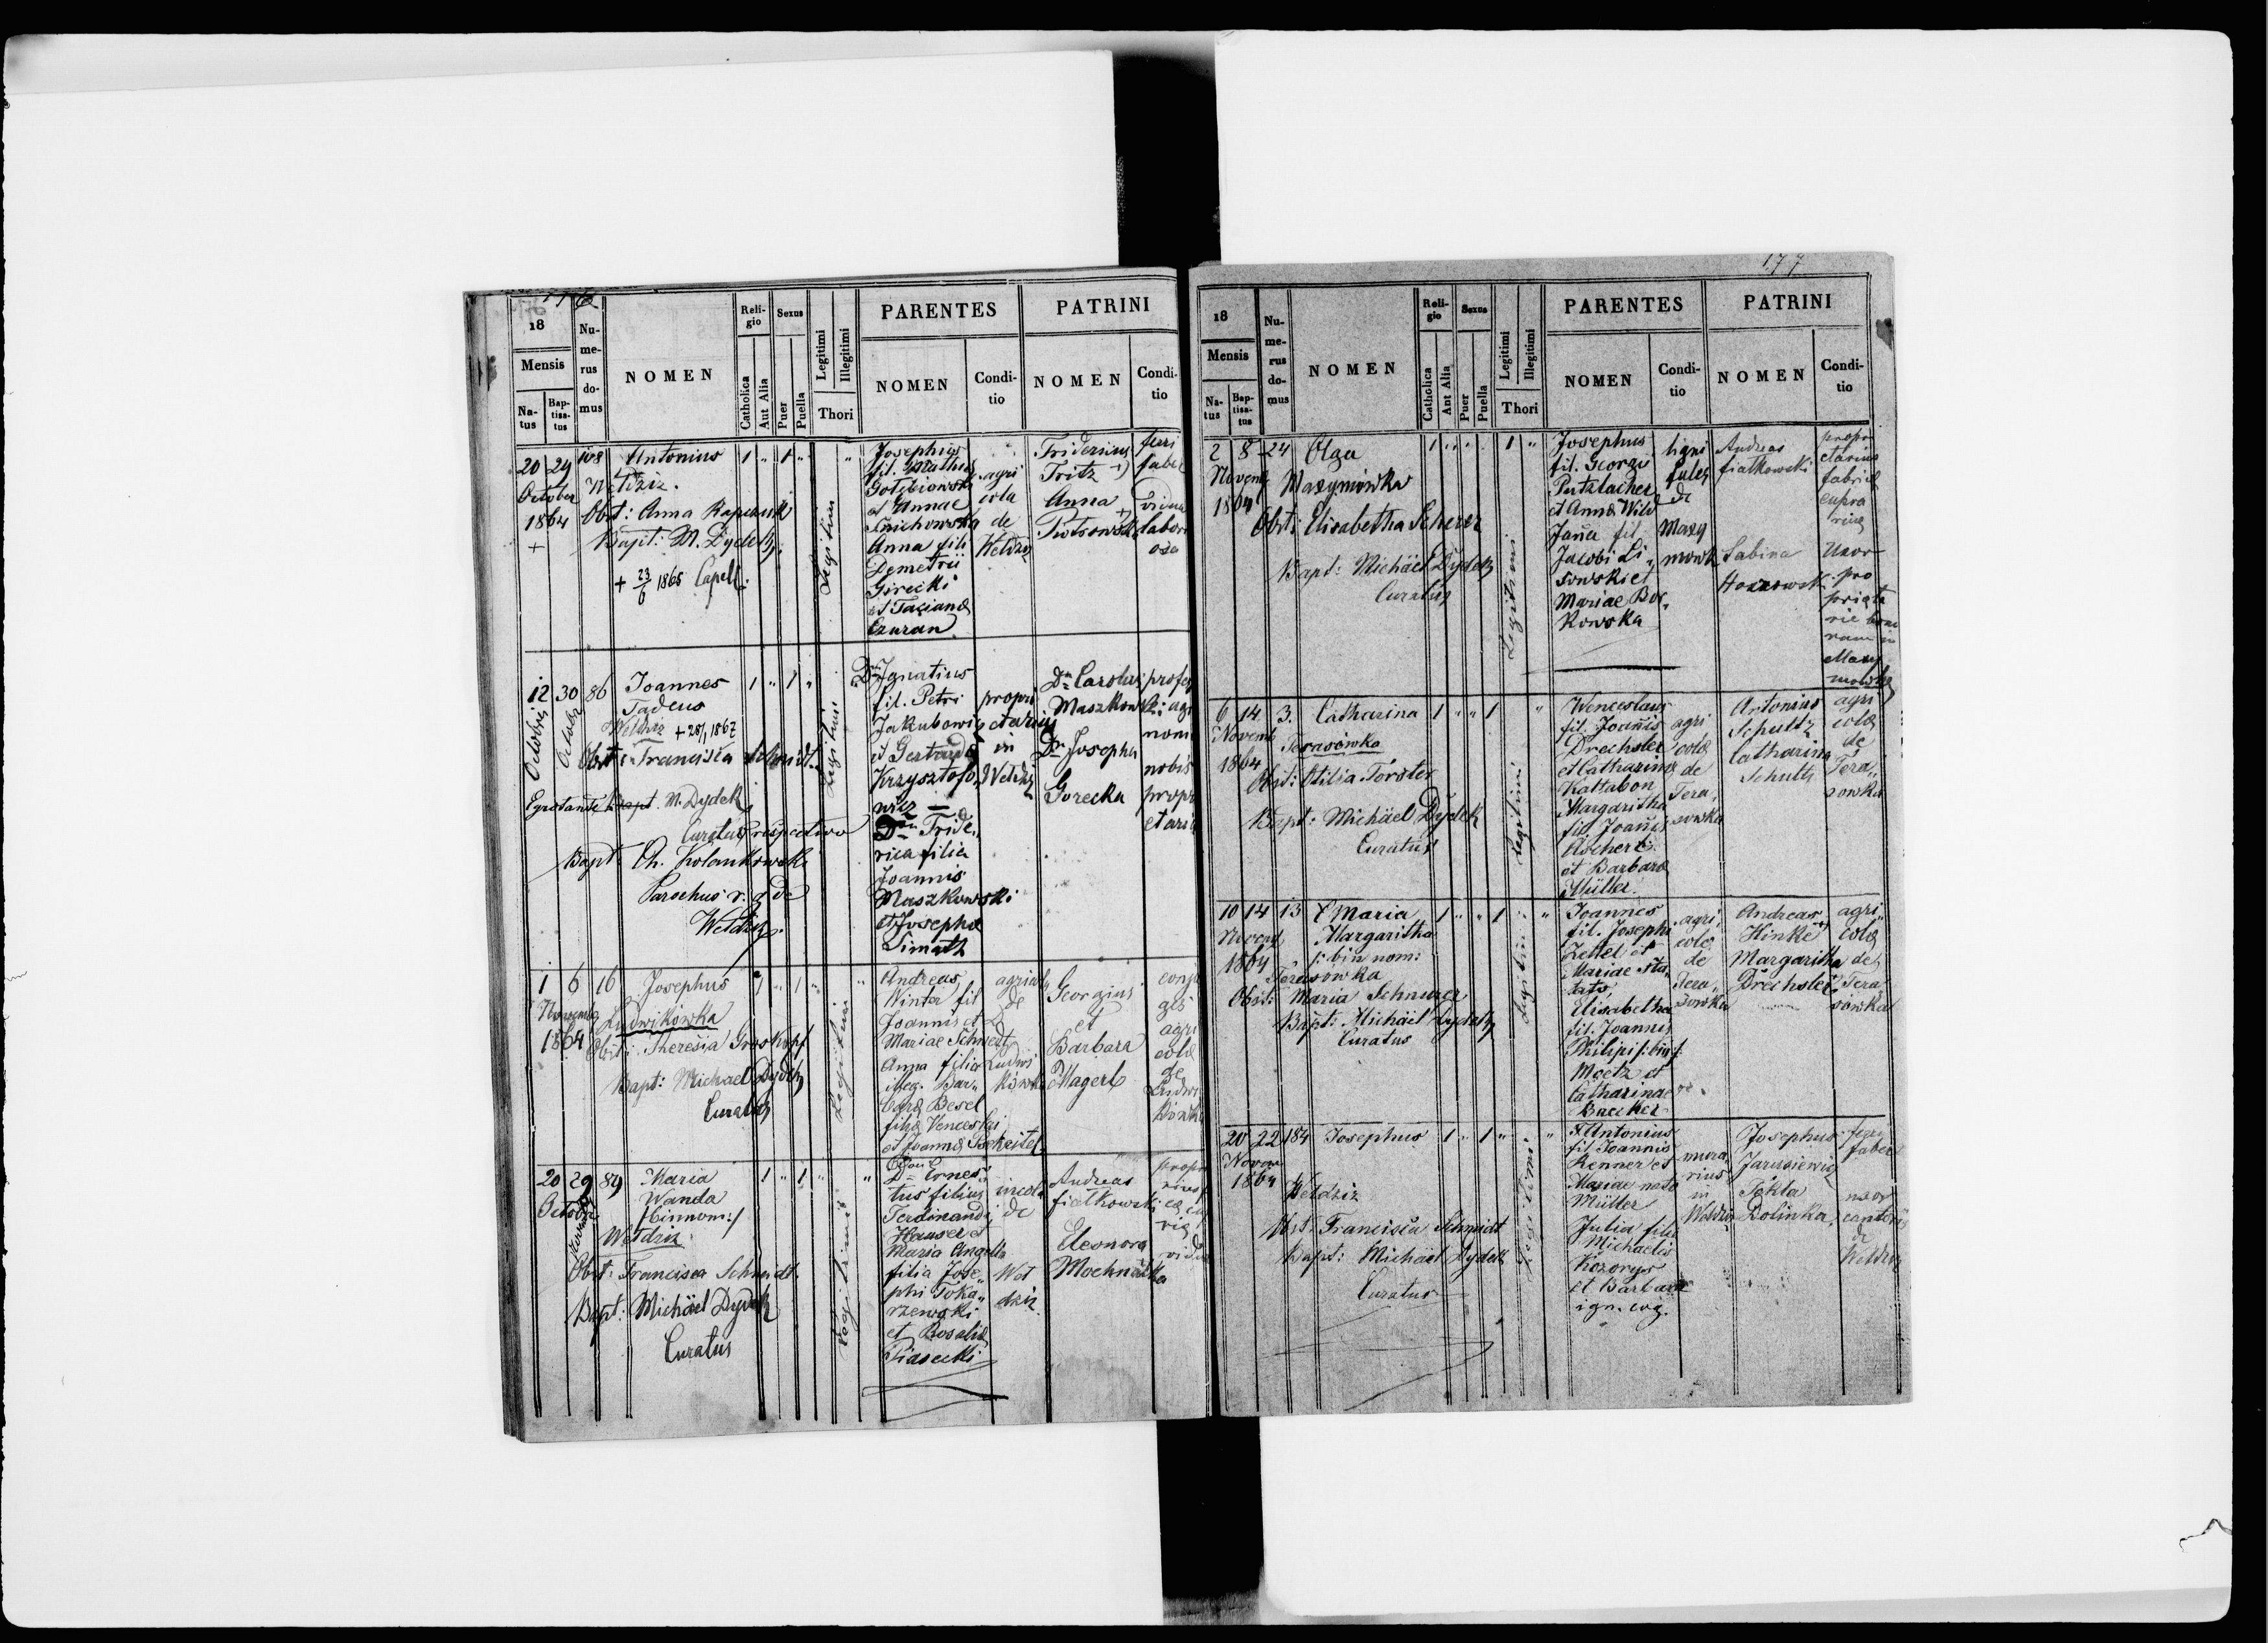 18
Mensis
Na-
tus
Bap-
tisa-
tus
Nu-
me-
rus
do-
mus
NOMEN
Reli-
gio
Catholica
Aut Alia
Sexus
Puer
Puella
Legitimi
Illegitimi
Thori
PARENTES
NOMEN
Condi-
tio
PATRINI
NOMEN
Condi-
tio
20 29 108 Antonius 1 " 1 "
October
1864
+
Obst: Anna
Bapt: M. Dydek
+ 23/6 1865 Capell.
Legitimi
Josephus
fil. Mathiae
Gołębiowski
et Annae
Anna fili
Demetrii
Girecki
et Tacianae
Czuran
agri
cola
de
Wełdzirz
Fridericus
Fritz +)
Anna
fabe
12 30 86 Joannes 1 " 1 "
Tadeus
Wełdzirz
Octobris
Obst: Francisca Schmidt
Bapt M. Dydek
Curatus respective
Bapt: Ch. Kolankowski
Parochus r. g. de
Wełdzirz
Legitimi
Dnus Ignatius
fil. Petri
Jakubowicz
et Gertrudae
Krzysztofo-
wicz
Dna Fride-
rica filia
Joannis
Maszkowski
et Josephae
Simath
propri
etarius
in
Wełdzirz
Dn Carolus
Maszkowski
Dna Josepha
Gorecka
nobis
propri
etaria
1 6 16 Josephus 1 " 1 "
Novembr
1864
Ludwikówka
Obst: Theresia Groskopf
Bapt: Michael Dydek
Curatus
Legitimi
Andreas
Winter fil
Joannis et
Mariae Schmidt
Anna filia
illeg. Bar-
barae Besel
filiae Venceslai
et Joannae
agricola
de
Ludwi
kówka
Georgius
et
Barbara
Magerl
conju
ges
agri
colae
de
Ludwi
kówka
20 29 89 Maria 1 " 1 "
Wanda
/:binnom:/
Wełdzirz
October
Obst: Francisca Schmidt
Bapt: Michäel Dydek
Curatus
Legitimi
Dnus Ernes-
tus filius
Ferdinandi
Hauser et
Maria Angella
filia Jose-
phi Toka-
rzewski
et Rosaliae
Piasecki
incola
de
Weł
dzirz
Andreas
fiałkowski
Eleonora
Mochnacka
177
18
Mensis
Na-
tus
Bap-
tisa-
tus
Nu-
me-
rus
do-
mus
NOMEN
Reli-
gio
Catholica
Aut Alia
Sexus
Puer
Puella
Legitimi
Illegitimi
Thori
PARENTES
NOMEN
Condi-
tio
PATRINI
NOMEN
Condi-
tio
2 8 24 Olga 1 " " 1 "
Novemb
1864
Mazymówka
Obst: Elisabetha Scherer
Bapt: Michäel Dydek
Curatus
Legitimi
Josephus
fil. Georgii
Putzlacher
et Annae Wild
Jaña fil
Jacobi Li-
sowski et
Mariae Bor-
kowska
ligni
de
Mazy
mowk
Andreas
fiałkowski
Sabina
propri
etarius
fabricae
cupra
riae
Uxor
pro
prieta
Mazy
mowka
6 14 3. Catharina 1 " " 1 "
Novemb
1864
Terasówka
Obst: Otilia Förster
Bapt: Michäel Dydek
Curatus
Legitimi
Wenceslaus
fil. Joañis
Drechsler
et Catharinae
Kattabon
Margaritha
fil. Joañis
Ascherl
et Barbarae
Müller.
agri
colae
de
Tera-
sowka
Antonius
Schultz
Catharina
Schultz
agri
colae
de
Tera-
sówka
10 14 13 Maria 1 " " 1 " "
Margaritha
/: bin nom:
Terasowka
Novemb
1864
Obst: Maria Schnurer
Bapt: Michäel Dydek
Curatus
Legitimi
Joannes
fil. Josephi
Zettel et
Mariae
Elisabetha
fil. Joannis
Philipi /:bin/:
Moetz et
Catharinae
Baecker
agri
colae
de
Tera-
sowka
Andreas
Hinke +)
Margaritha
Drechsler
agri
colae
de
Tera-
sówka
20 22 184 Josephus 1 " 1 " " "
Novem
1864
Wełdzirz
Obst: Francisca Schmidt
Bapt: Michael Dydek
Curatus
Legitimi
Antonius
fil. Joannis
Renner et
Mariae nata
Müller
Julia filia
Michaelis
Kozorys
et Barbarae
ign. cog.
mura
rius
in
Wełdzirz
Josephus
Jarusiewicz
Tekla
Dolinka
ferri
faber
uxor
cantoris
de
Wełdzirz